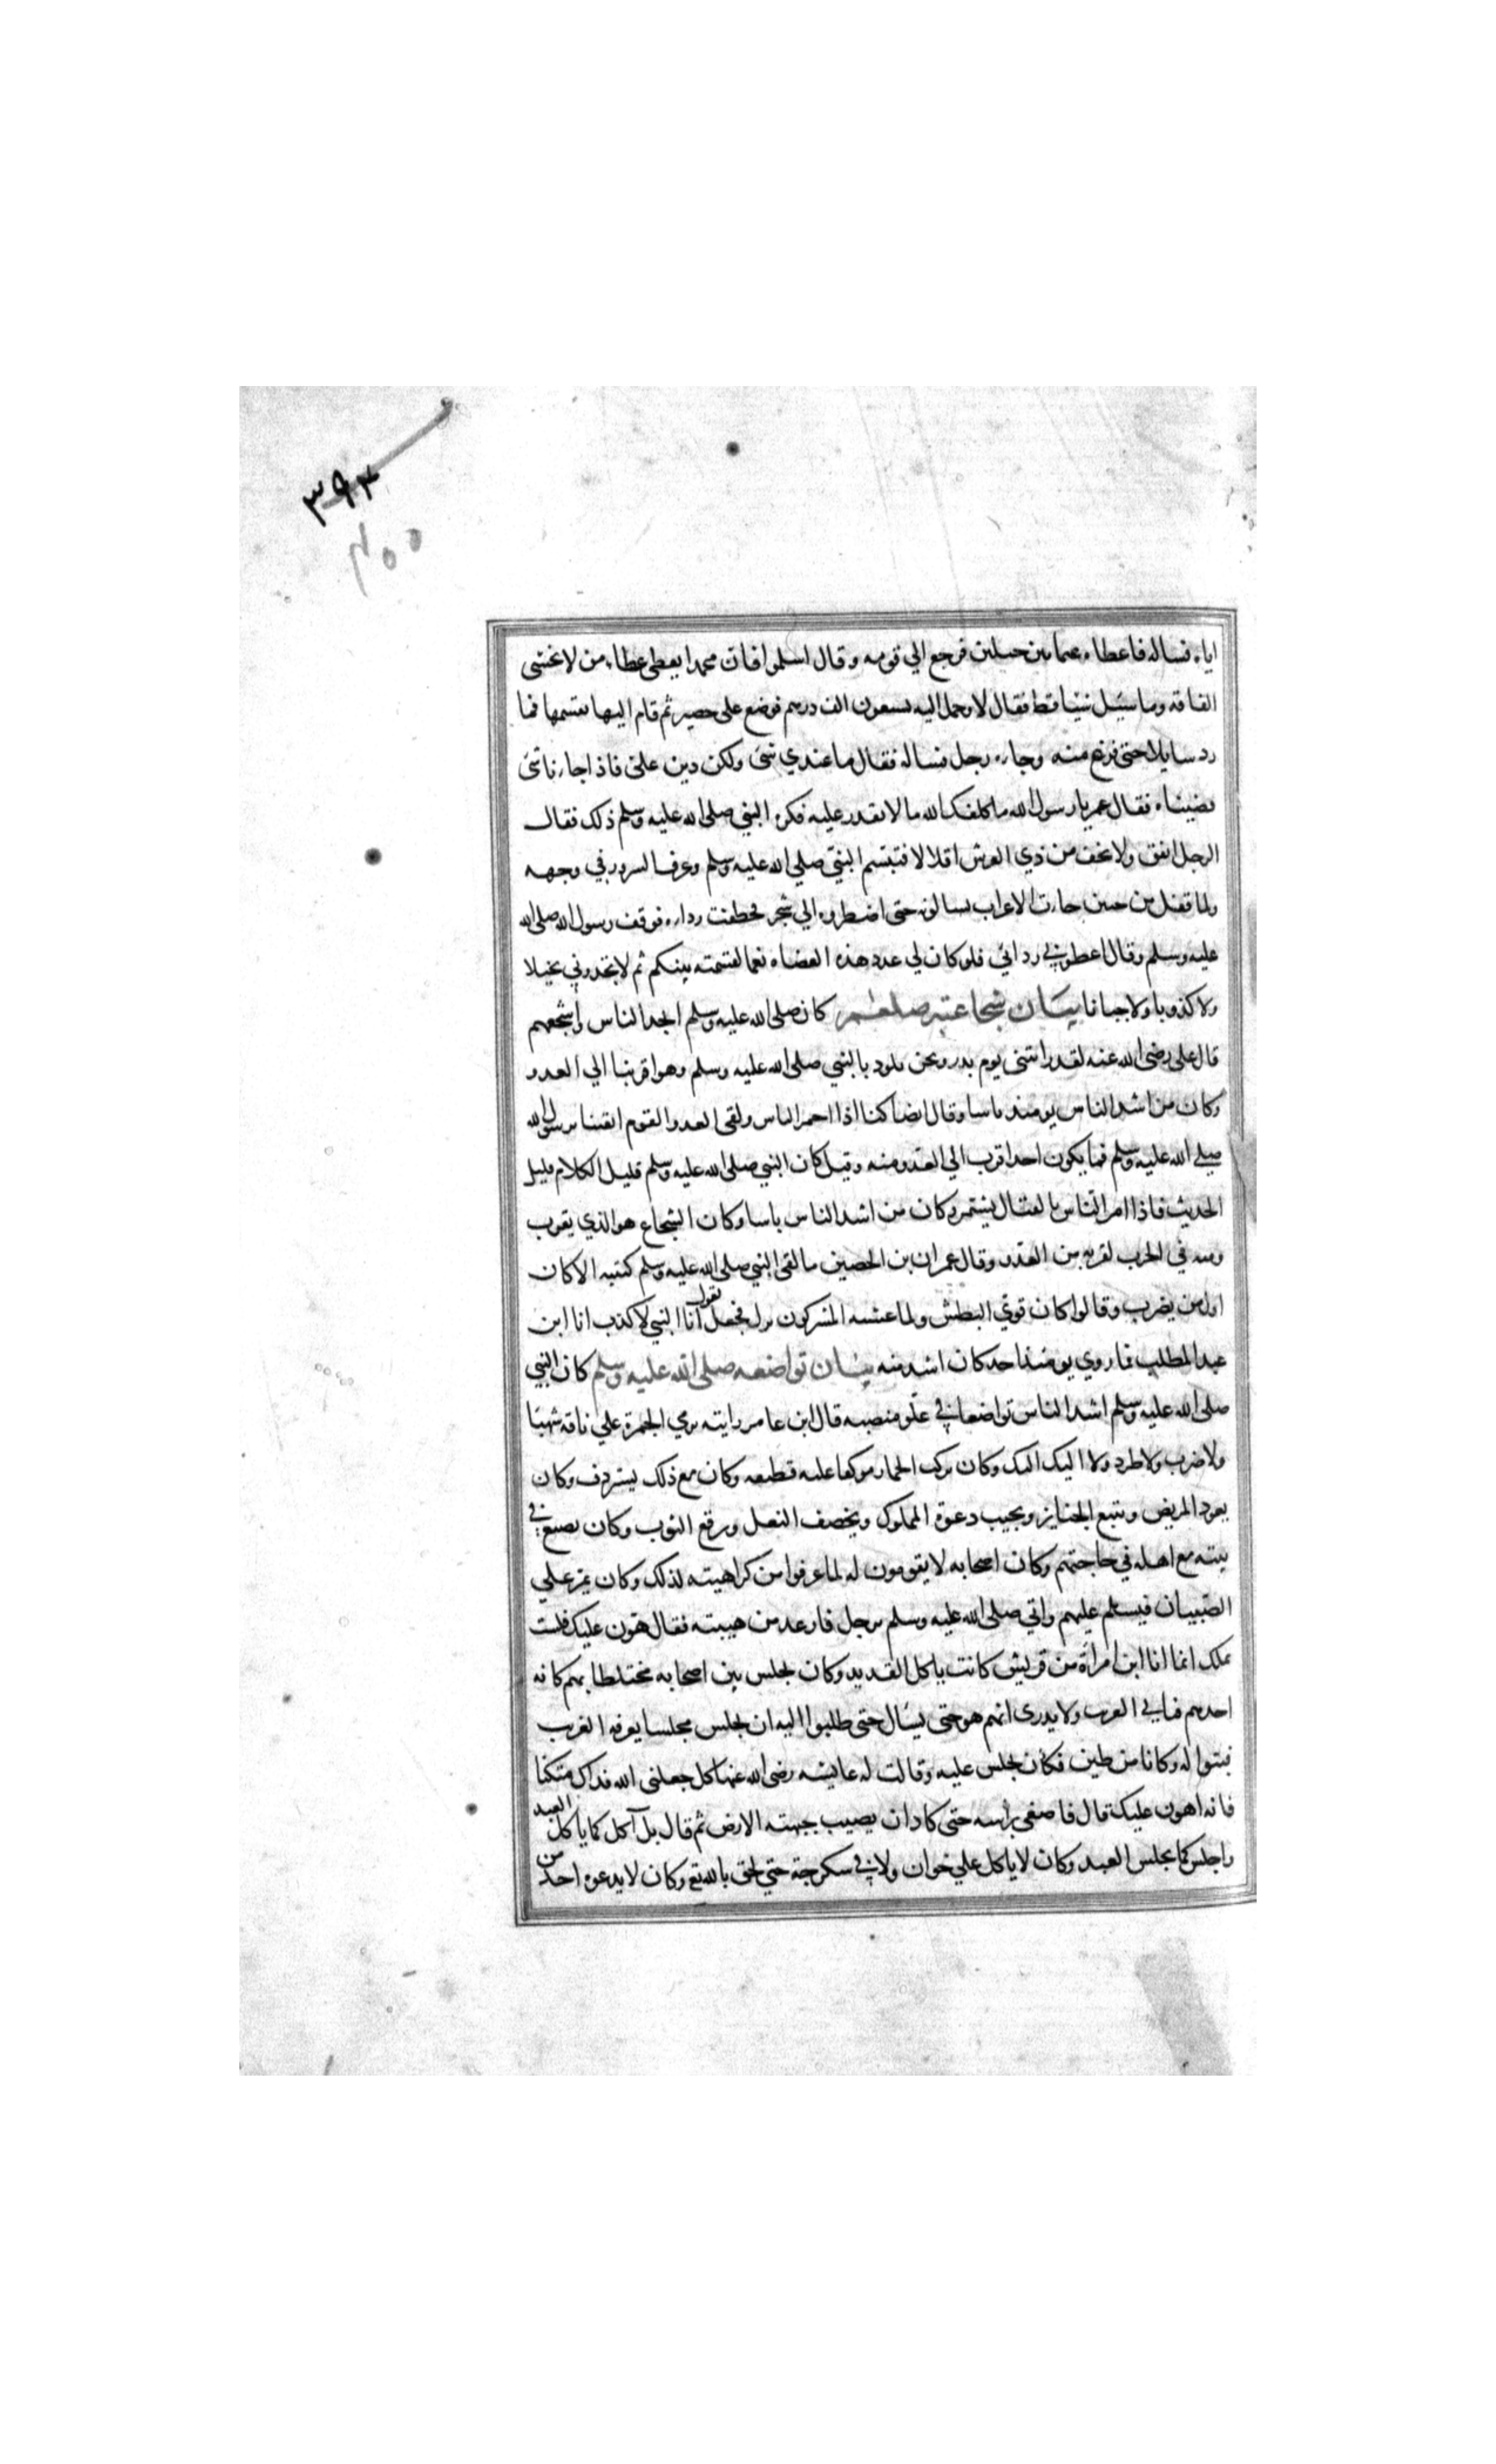 ٣٩٣
٤٠٠
اياه فساله فاعطاه غما بين جبلين فرجع الي قومه وقال اسلموا فان محمدا يعطي عطاء من لا يخشى
الفاقه وما سئل شئا قط فقال لا وحمل اليه تسعون الف درهم فوضع على حصير ثم قام اليها يقسمها فما
رد سايلا حتى فرغ منه وجاءه رجل فساله فقال ما عندي شئ ولكن دين على فاذا جاءنا شئ
قضيناه فقال عمر يا رسول الله ما كلفك الله ما لا تقدر عليه فكره النبي صلى الله عليه وسلم ذلك فقال
الرجل انفق ولا تخف من ذي العرش اقلالا فتبسم النبي صلي الله عليه وسلم وعرف السرور في وجهه
ولما قفل من حنين جاءت الاعراب يسالونه حتى اضطروه الي شجر فخطفت رداءه فوقف رسول الله صلى الله
عليه وسلم وقال اعطوني ردائي فلو كان لي عدد هذه العضاه نعما لقسمته بينكم ثم لا تجدوني بخيلا
ولا كذوبا ولا جبانا بيان شجاعته صلعم كان صلى الله عليه وسلم انجد الناس واشجعهم
قال على رضى الله عنه لقد رايتنى يوم بدر ونحن نلوذ بالنبي صلى الله عليه وسلم وهو اقربنا الي العدو
وكان من اشد الناس يومئذ باسا وقال ايضا كنا اذا احمر الباس ولقى العدو القوم اتقينا برسول الله
صلى الله عليه وسلم فما يكون احد اقرب الي العدو منه وقيل كان النبي صلى الله عليه وسلم قليل الكلام قليل
الحديث فاذا امر الناس بالقتال يتشمر وكان من اشد الناس باسا وكان الشجاع هو الذي يقرب
منه في الحرب لقربه من العدو وقال عمران بن الحصين ما لقى النبي صلى الله عليه وسلم كتيبه الا كان
اول من يضرب وقالوا كان قوي البطش ولما غشيه المشركون نزل فجعل يقول انا النبي لا كذب انا ابن
عبد المطلب فما روي يومئذ احد كان اشد منه بيان تواضعه صلى الله عليه وسلم كان النبي
صلى الله عليه وسلم اشد الناس تواضعا في علو منصبه قال ابن عامر رايته يرمي الجمرة علي ناقه شهبا
ولا ضرب ولا طرد ولا اليك اليك وكان يركب الحمار موكفا عليه قطيفه وكان مع ذلك يستردف وكان
يعود المريض ويتبع الجنايز ويجيب دعوة المملوك ويخصف النعل ويرقع الثوب وكان يصنع في
بيته مع اهله في حاجتهم وكان اصحابه لا يقومون له لما عرفوا من كراهيته لذلك وكان يمر علي
الصبيان فيسلم عليهم واتي صلى الله عليه وسلم برجل فارعد من هيبته فقال هون عليك فلست
بملك انما انا ابن امراة من قريش كانت ياكل القديد وكان يجلس بين اصحابه مختلطا بهم كانه
احدهم فياتي الغريب ولا يدرى ايهم هو حتى يسأل حتى طلبوا اليه ان يجلس مجلسا يعرفه الغرب
فبنوا له دكانا من طين فكان يجلس عليه وقالت له عايشه رضى الله عنها كل جعلنى الله فداك متكئا
فانه اهون عليك قال فاصغى براسه حتى كاد ان يصيب جبهته الارض ثم قال بل آكل كما ياكل العبد
واجلس كما يجلس العبد وكان لا ياكل علي خوان ولا في سكرجة حتي لحق بالله تع وكان لا يدعوه احد من